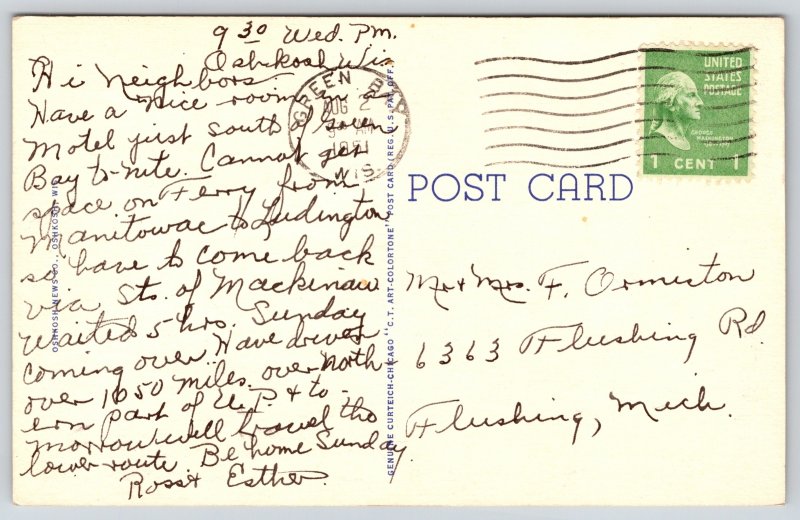 9 30 Wed. P.M.
Oshkosh Wis
Hi Neighbors
Have a nice room in
Motel just south of Green
Bay to-nite. Cannot get
space on Ferry from
Manitowac to Ludington
so have to come back
via Sts. of Mackinaw
Waited 5 hrs. Sunday
coming over. Have driven
over 1050 miles over North
ern part of U.P. & to-
morrow will travel the
lower route. Be home Sunday
Ross & Esther
GREEN BAY
AUG 2
AM
1951
WIS
UNITED
STATES
POSTAGE
GEORGE
WASHINGTON
1 CENT 1
POST CARD
Mr & Mrs. F. Ormiston
6363 Flushing Rd
Flushing, Mich.
OSHKOSH NEWS CO., OSHKOSH, WIS.
GENUINE CURTEICH-CHICAGO "C.T. ART-COLORTONE" POST CARD (REG. U.S. PAT. OFF.)